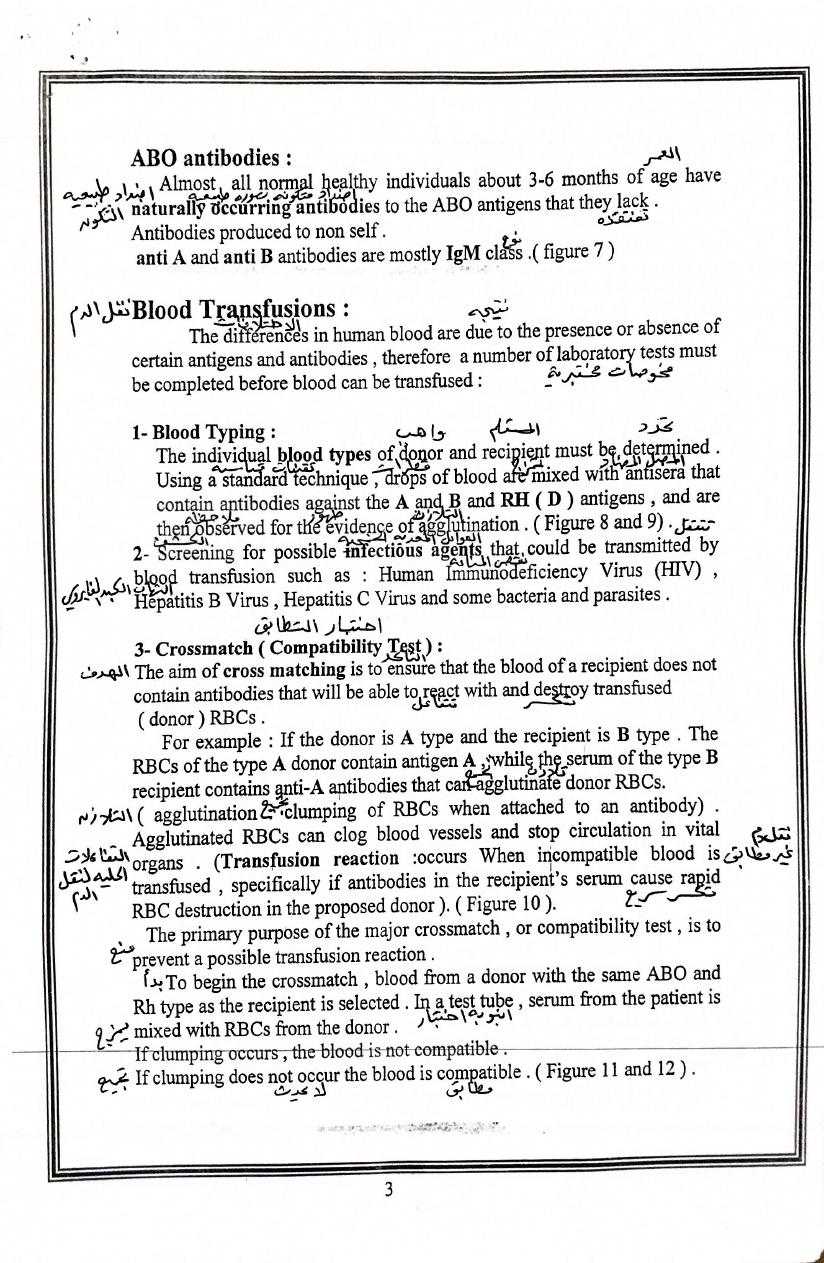 ABO antibodies :
العمر
Almost all normal healthy individuals about 3-6 months of age have
اضداد طبيعيه
اضداد متكونه بصوره طبيعيه
naturally occurring antibodies to the ABO antigens that they lack .
التكونه
تفتقده
Antibodies produced to non self .
نوع
anti A and anti B antibodies are mostly IgM class .( figure 7 )
نقل الدم
Blood Transfusions :
نتيجه
الاختلافات
The differences in human blood are due to the presence or absence of
certain antigens and antibodies , therefore a number of laboratory tests must
فحوصات مختبرية
be completed before blood can be transfused :
1- Blood Typing :
واهب
المستلم
تحدد
The individual blood types of donor and recipient must be determined .
تقنيات قياسية
قطرات
المصل المضاد
Using a standard technique , drops of blood are mixed with antisera that
contain antibodies against the A and B and RH ( D ) antigens , and are
ملاحظه
ظهور
التلازن
then observed for the evidence of agglutination . ( Figure 8 and 9) .
تنتقل
الكشف
العوامل المعدية
2- Screening for possible infectious agents that could be transmitted by
نقص المناعة
blood transfusion such as : Human Immunodeficiency Virus (HIV) ,
التهاب الكبد الفايروسي
Hepatitis B Virus , Hepatitis C Virus and some bacteria and parasites .
اختبار التطابق
3- Crossmatch ( Compatibility Test ) :
الهدف
التاكد
The aim of cross matching is to ensure that the blood of a recipient does not
contain antibodies that will be able to react with and destroy transfused
تتفاعل
تكسر
( donor ) RBCs .
For example : If the donor is A type and the recipient is B type . The
RBCs of the type A donor contain antigen A , while the serum of the type B
تلازن
recipient contains anti-A antibodies that can agglutinate donor RBCs.
التلازن
( agglutination : clumping of RBCs when attached to an antibody) .
Agglutinated RBCs can clog blood vessels and stop circulation in vital
التفاعلات
organs . (Transfusion reaction :occurs When incompatible blood is
غير مطابق
لنقل الدم
transfused , specifically if antibodies in the recipient's serum cause rapid
تكسر سريع
RBC destruction in the proposed donor ). ( Figure 10 ).
The primary purpose of the major crossmatch , or compatibility test , is to
منع
prevent a possible transfusion reaction .
بدأ
To begin the crossmatch , blood from a donor with the same ABO and
Rh type as the recipient is selected . In a test tube , serum from the patient is
انبوبة اختبار
يمزج
mixed with RBCs from the donor .
If clumping occurs , the blood is not compatible .
تجمع
If clumping does not occur the blood is compatible . ( Figure 11 and 12 ) .
لا يحدث
مطابق
3